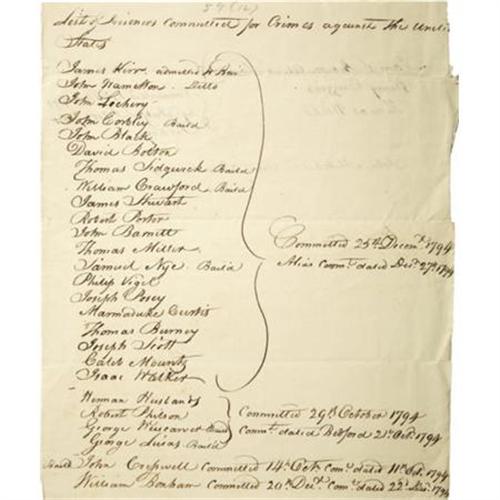 57 (12)
List of Prisoners Committed for Crimes against the United
States
James Kerr admitted to Bail
John Hamelton Ditto
John Lockery
John Corbley Bail'd
John Black
David Bolton
Thomas Sidgwick Bail'd
William Crawford Bail'd
James Stewart
Robert Porter
John Barnett
Thomas Miller
Samuel Nye Bail'd
Philip Vigel
Joseph Posey
Marmaduke Curtis
Thomas Burney
Joseph Scott
Caleb Mountz
Isaac Walker
Committed 25th Decemr 1794
Alias Commt dated Decr 27th 1794
Herman Husbands
Robert Philson
George Wiscarver Bail'd
George Lucas Bail'd
Committed 29th October 1794
Commt dated Bedford 21st Octr 1794
Bail'd John Criswell Committed 14th Octr Comt dated 11th Oct 1794
William Bonham Committed 20th Decr Comt dated 22d 1794